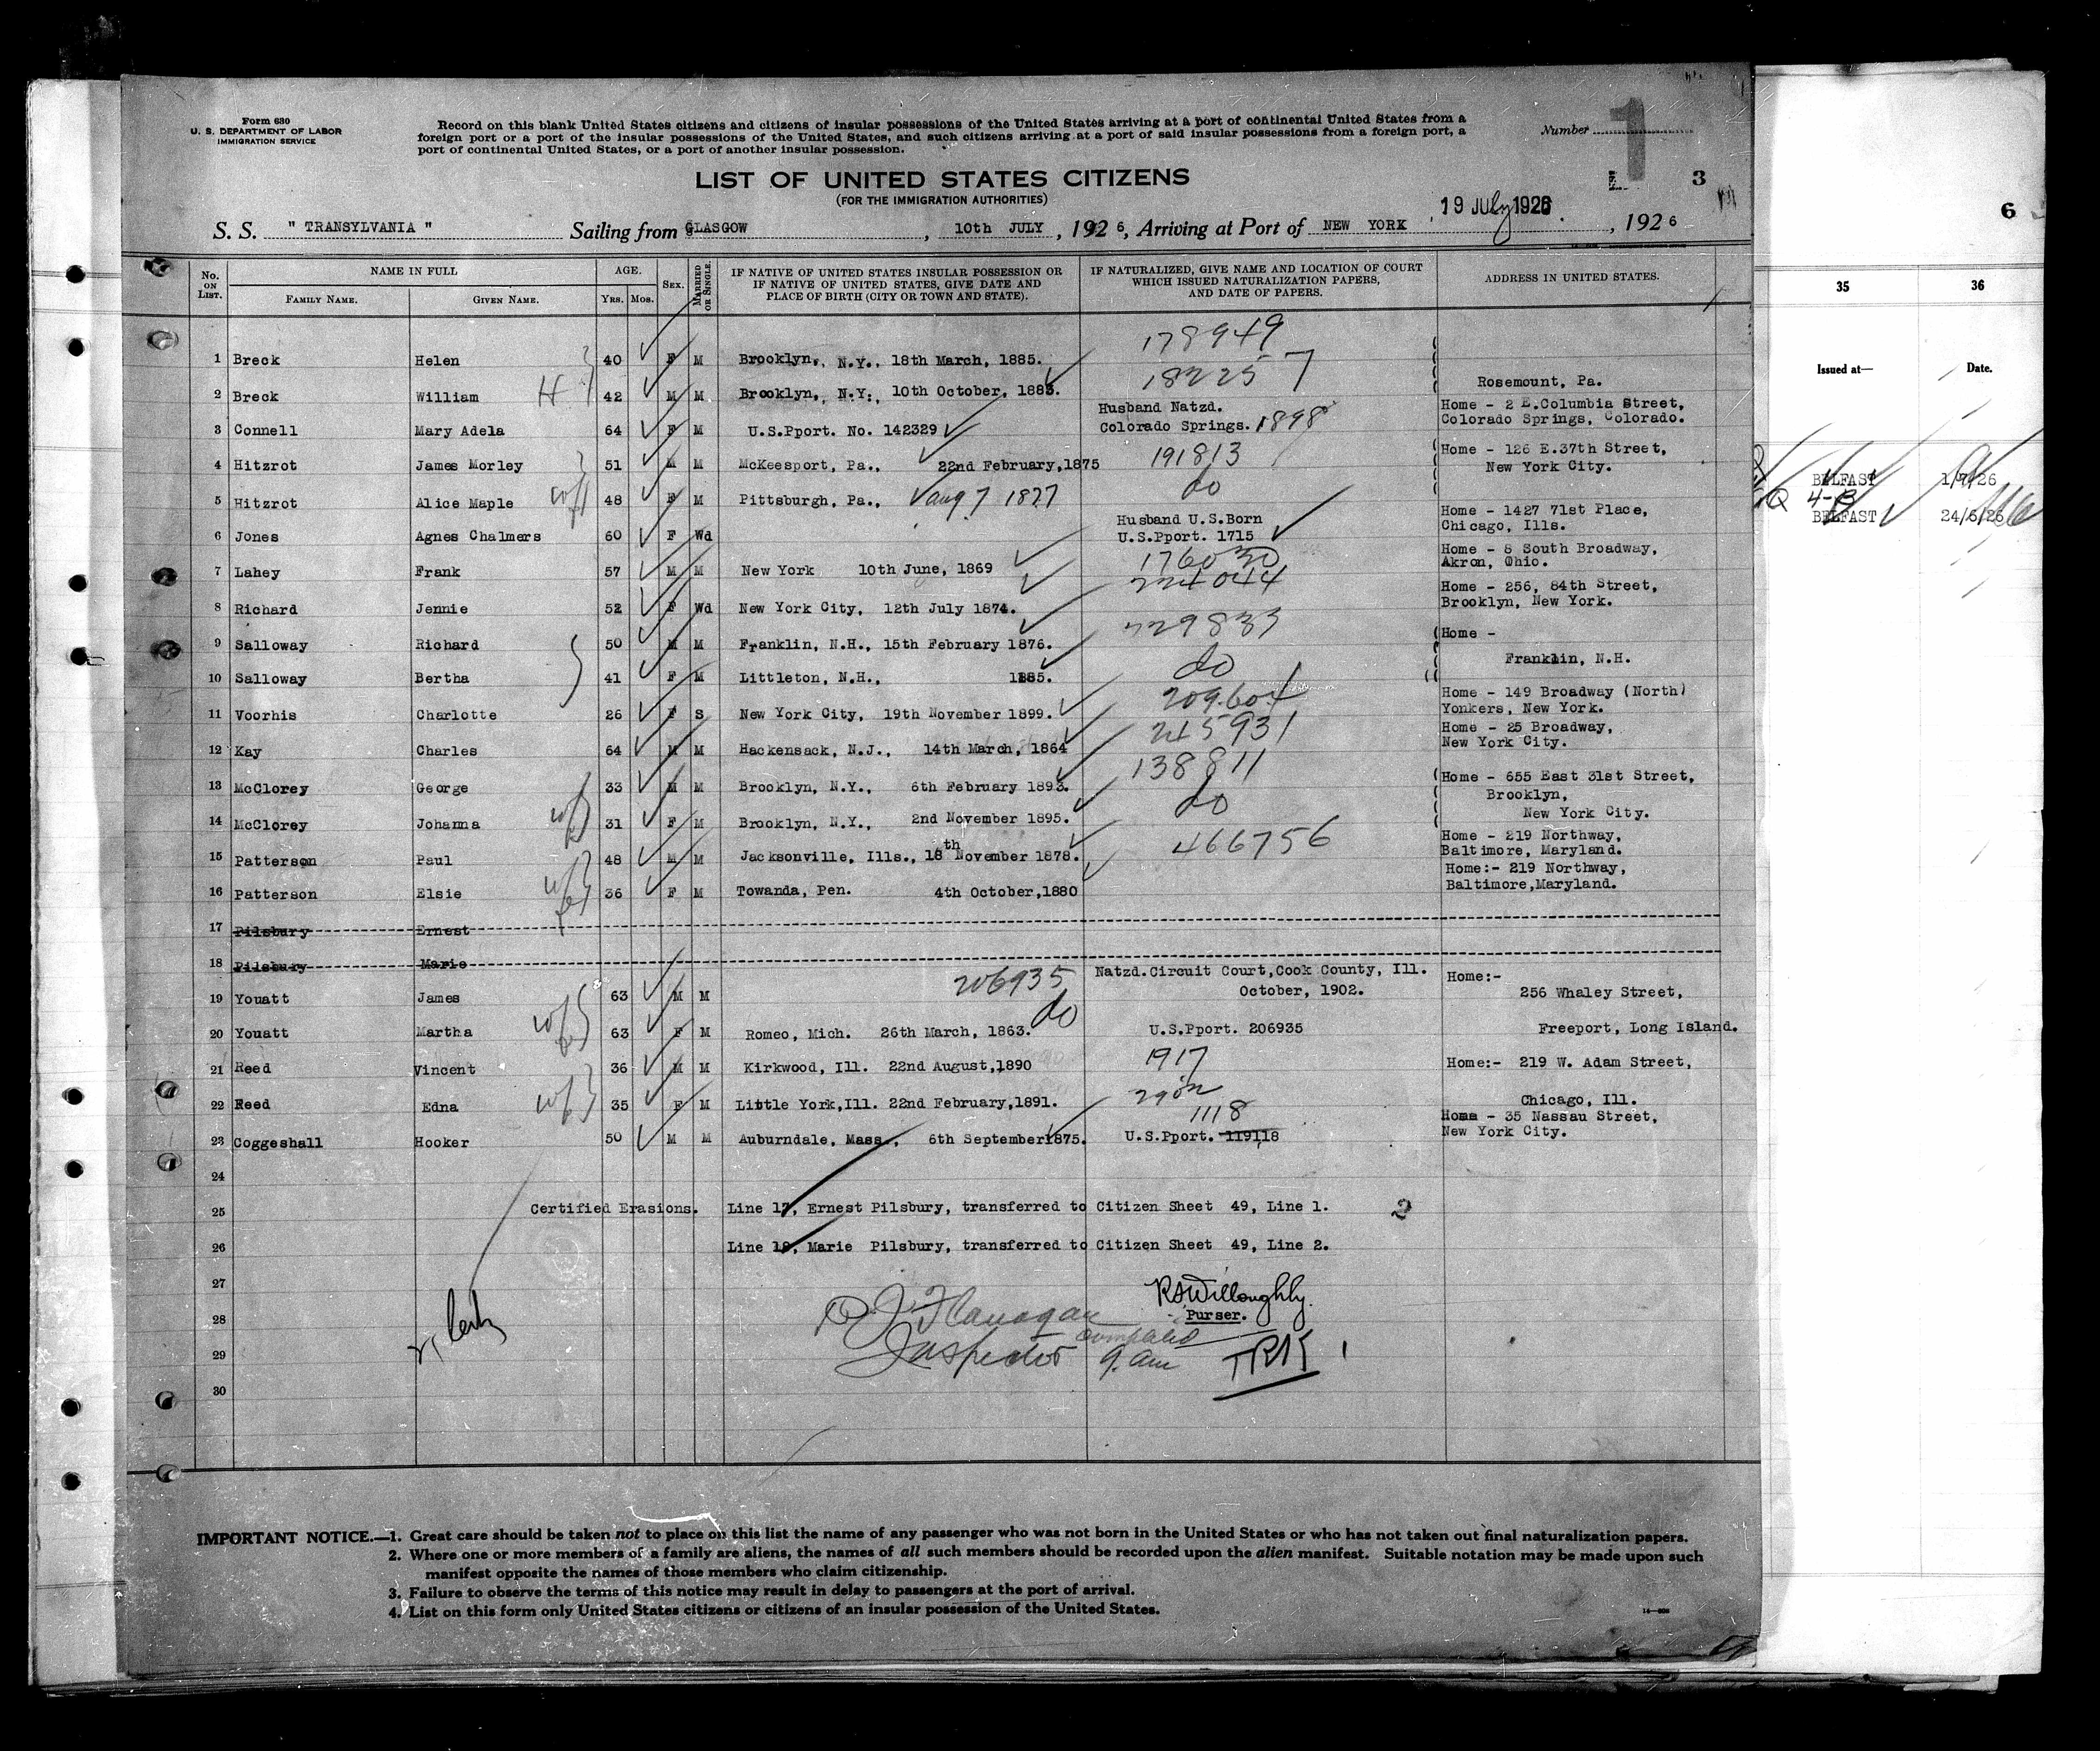 Form 630
U. S. DEPARTMENT OF LABOR
IMMIGRATION SERVICE
Record on this blank United States citizens and citizens of insular possessions of the United States arriving at a port of continental United States from a
foreign port or a port of the insular possessions of the United States, and such citizens arriving at a port of said insular possessions from a foreign port, a
port of continental United States, or a port of another insular possession.
Number 1
3
LIST OF UNITED STATES CITIZENS
(FOR THE IMMIGRATION AUTHORITIES)
19 July 1926
S. S. " TRANSYLVANIA " Sailing from GLASGOW, 10th JULY, 1926, Arriving at Port of NEW YORK, 1926
No. ON LIST. NAME IN FULL AGE. SEX. MARRIED OR SINGLE. IF NATIVE OF UNITED STATES INSULAR POSSESSION OR IF NATIVE OF UNITED STATES, GIVE DATE AND PLACE OF BIRTH (CITY OR TOWN AND STATE). IF NATURALIZED, GIVE NAME AND LOCATION OF COURT WHICH ISSUED NATURALIZATION PAPERS, AND DATE OF PAPERS. ADDRESS IN UNITED STATES.
FAMILY NAME. GIVEN NAME. YRS. MOS.
1 Breck Helen 40 F M Brooklyn, N.Y., 18th March, 1885. 178949
2 Breck William 42 M M Brooklyn, N.Y., 10th October, 1883. 182257 Rosemount, Pa.
3 Connell Mary Adela 64 F M U.S.Pport. No. 142329 Husband Natzd. Colorado Springs. 1898 Home - 2 E.Columbia Street, Colorado Springs, Colorado.
4 Hitzrot James Morley 51 M M McKeesport, Pa., 22nd February,1875 191813 Home - 126 E.37th Street, New York City.
5 Hitzrot Alice Maple 48 F M Pittsburgh, Pa., aug 7 1877 do
6 Jones Agnes Chalmers 60 F Wd Husband U.S.Born U.S.Pport. 1715 Home - 1427 71st Place, Chicago, Ills.
7 Lahey Frank 57 M M New York 10th June, 1869 176030 Home - 8 South Broadway, Akron, Ohio.
8 Richard Jennie 52 F Wd New York City, 12th July 1874. 224044 Home - 256, 84th Street, Brooklyn, New York.
9 Salloway Richard 50 M M Franklin, N.H., 15th February 1876. 229833 Home -
10 Salloway Bertha 41 F M Littleton, N.H., 1885. do Franklin, N.H.
11 Voorhis Charlotte 26 F S New York City, 19th November 1899. 209604 Home - 149 Broadway (North) Yonkers, New York.
12 Kay Charles 64 M M Hackensack, N.J., 14th March, 1864 245931 Home - 25 Broadway, New York City.
13 McClorey George 33 M M Brooklyn, N.Y., 6th February 1893. 138811 Home - 655 East 31st Street, Brooklyn,
14 McClorey Johanna 31 F M Brooklyn, N.Y., 2nd November 1895. do New York City.
15 Patterson Paul 48 M M Jacksonville, Ills., 18th November 1878. 466756 Home - 219 Northway, Baltimore, Maryland.
16 Patterson Elsie 36 F M Towanda, Pen. 4th October,1880 Home:- 219 Northway, Baltimore,Maryland.
17 Pilsbury Ernest
18 Pilsbury Marie
19 Youatt James 63 M M 206935 Natzd.Circuit Court,Cook County, Ill. October, 1902. Home:- 256 Whaley Street,
20 Youatt Martha 63 F M Romeo, Mich. 26th March, 1863. do U.S.Pport. 206935 Freeport, Long Island.
21 Reed Vincent 36 M M Kirkwood, Ill. 22nd August,1890 1917 Home:- 219 W. Adam Street,
22 Reed Edna 35 F M Little York,Ill. 22nd February,1891. Chicago, Ill.
23 Coggeshall Hooker 50 M M Auburndale, Mass., 6th September1875. 1118 U.S.Pport. 119118 Home - 35 Nassau Street, New York City.
24
25 Certified Erasions. Line 17, Ernest Pilsbury, transferred to Citizen Sheet 49, Line 1. 2
26 Line 18, Marie Pilsbury, transferred to Citizen Sheet 49, Line 2.
27
RSWilloughby.
28 Flanagan Purser.
29 Inspector 9. am TRK
30
IMPORTANT NOTICE.—1. Great care should be taken not to place on this list the name of any passenger who was not born in the United States or who has not taken out final naturalization papers.
2. Where one or more members of a family are aliens, the names of all such members should be recorded upon the alien manifest. Suitable notation may be made upon such
manifest opposite the names of those members who claim citizenship.
3. Failure to observe the terms of this notice may result in delay to passengers at the port of arrival.
4. List on this form only United States citizens or citizens of an insular possession of the United States.
6
35 36
Issued at— Date.
BELFAST 1/7/26
BELFAST 24/6/26